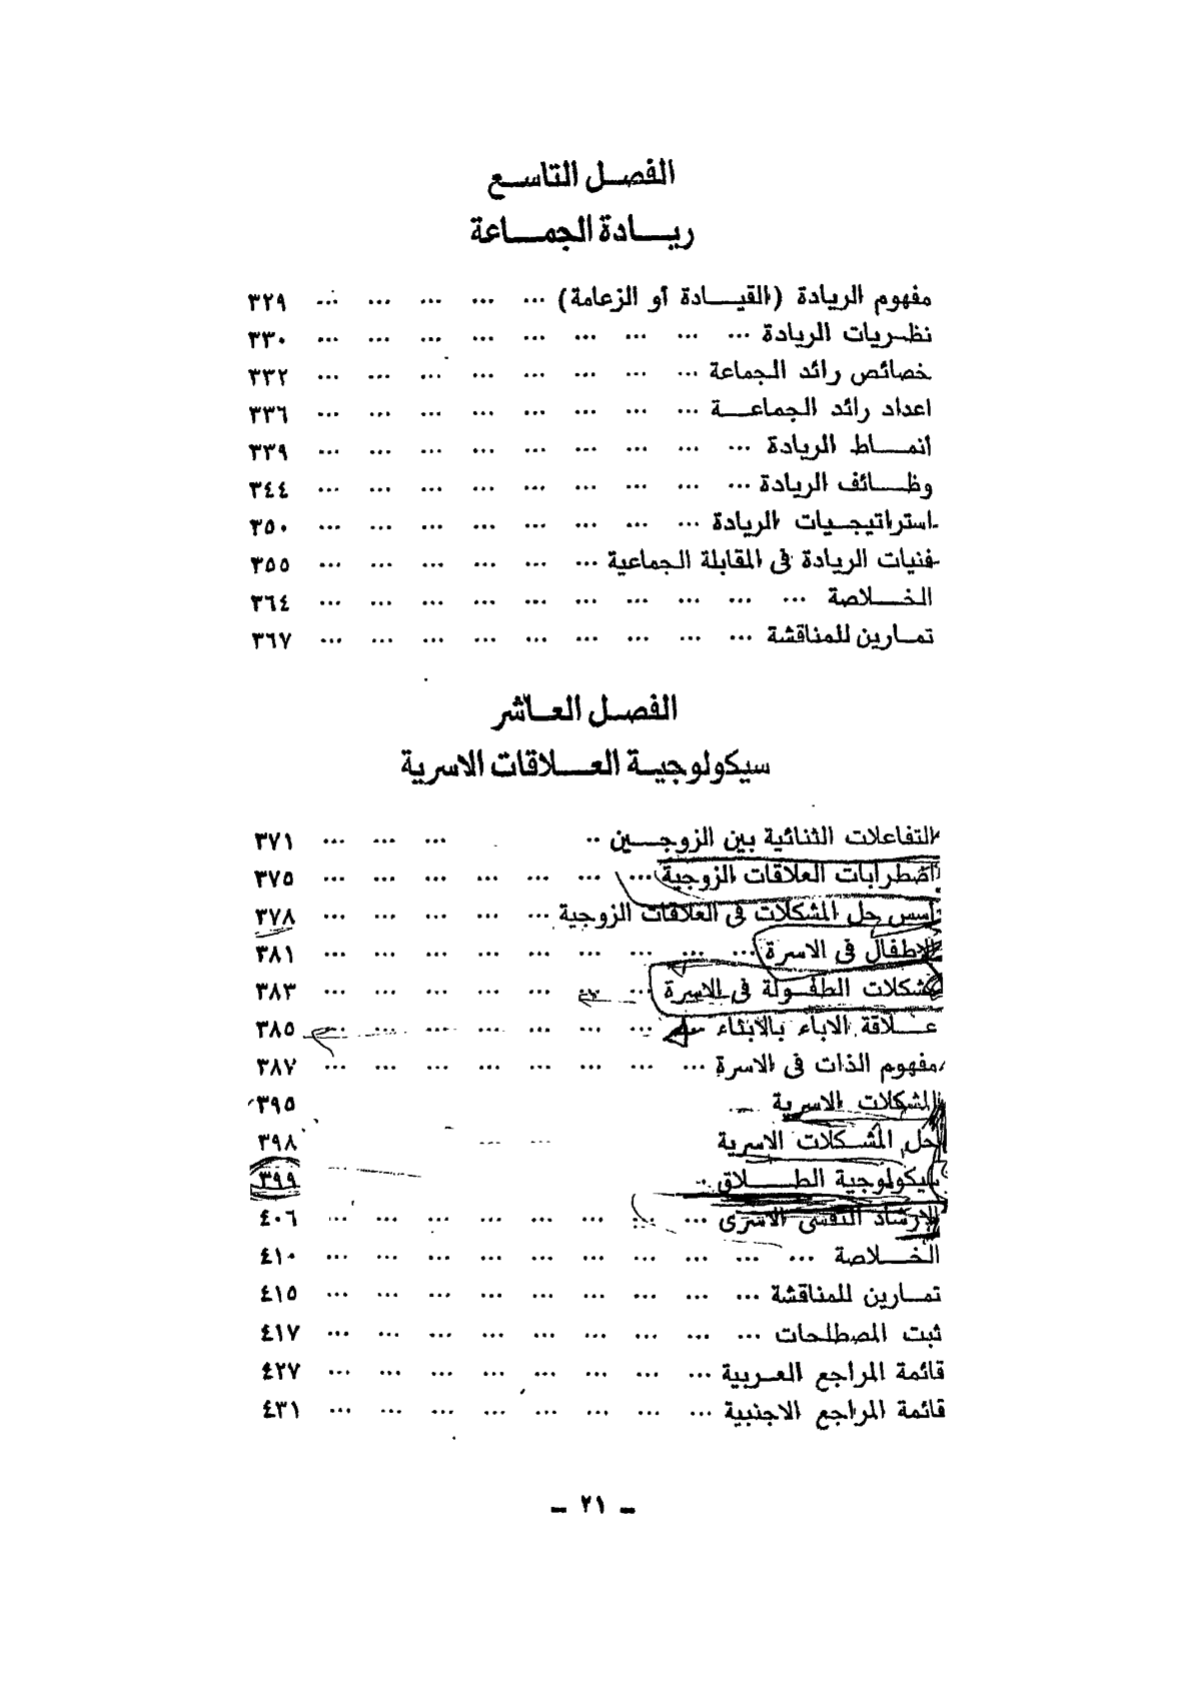 الفصل التاسع
ريادة الجماعة
مفهوم الريادة (القيادة أو الزعامة) ... ... ... ... ... ٣٢٩
نظريات الريادة ... ... ... ... ... ... ... ... ... ٣٣٠
خصائص رائد الجماعة ... ... ... ... ... ... ... ... ٣٣٢
اعداد رائد الجماعة ... ... ... ... ... ... ... ... ٣٣٦
أنماط الريادة ... ... ... ... ... ... ... ... ... ٣٣٩
وظائف الريادة ... ... ... ... ... ... ... ... ... ٣٤٤
استراتيجيات الريادة ... ... ... ... ... ... ... ... ٣٥٠
فنيات الريادة فى المقابلة الجماعية ... ... ... ... ... ... ٣٥٥
الخلاصة ... ... ... ... ... ... ... ... ... ... ٣٦٤
تمارين للمناقشة ... ... ... ... ... ... ... ... ... ٣٦٧
الفصل العاشر
سيكولوجية العلاقات الاسرية
التفاعلات الثنائية بين الزوجين .. ... ... ... ٣٧١
اضطرابات العلاقات الزوجية ... ... ... ... ... ... ... ٣٧٥
أسس حل المشكلات فى العلاقات الزوجية ... ... ... ... ... ٣٧٨
الاطفال فى الاسرة ... ... ... ... ... ... ... ... ... ٣٨١
مشكلات الطفولة فى الاسرة ... ... ... ... ... ... ... ٣٨٣
علاقة الاباء بالابناء ... ... ... ... ... ... ... ٣٨٥
مفهوم الذات فى الاسرة ... ... ... ... ... ... ... ... ٣٨٧
المشكلات الاسرية ... ٣٩٥
حل المشكلات الاسرية ... ... ٣٩٨
سيكولوجية الطلاق .. ٣٩٩
الارشاد النفسى الاسرى ... ... ... ... ... ... ... ... ٤٠٦
الخلاصة ... ... ... ... ... ... ... ... ... ... ٤١٠
تمارين للمناقشة ... ... ... ... ... ... ... ... ... ٤١٥
ثبت المصطلحات ... ... ... ... ... ... ... ... ... ٤١٧
قائمة المراجع العربية ... ... ... ... ... ... ... ... ٤٢٧
قائمة المراجع الاجنبية ... ... ... ... ... ... ... ... ٤٣١
– ٢١ –